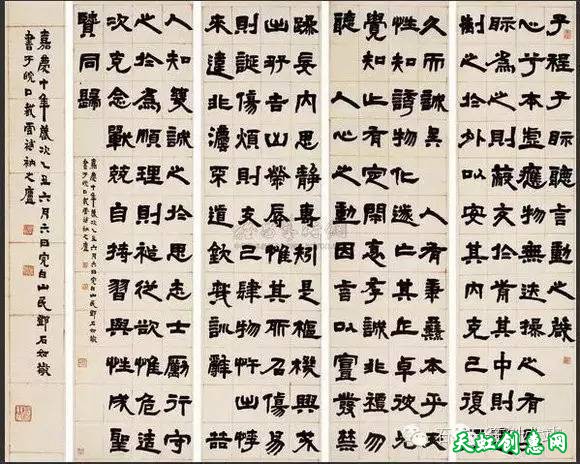 子程子言動箴
心兮本虛應物無迹操之有
要視為之則蔽交於前其中則遷
制之於外以安其內克己復禮
久而誠矣人有秉彝本乎天
性知誘物化遂亡其正卓彼先
覺知止有定閑邪存誠非禮勿
聽人心之動因言以宣發禁
躁妄內斯靜專矧是樞機興戎
出好吉凶榮辱惟其所召傷易
則誕傷煩則支己肆物忤出悖
來違非灋不道欽哉訓辭
人知幾誠之於思志士勵行守
之於為順理則裕從欲惟危造
次克念戰兢自持習與性成聖
賢同歸
嘉慶十年歲次乙丑六月六日完白山民鄧石如敬
書于皖口載雪補衲之廬
嘉慶十年歲次乙丑六月六日完白山民鄧石如敬
書于皖口載雪補衲之廬
天虹创意网